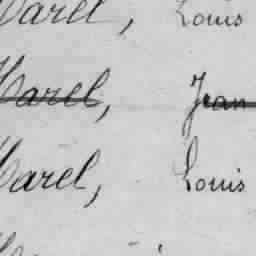 Harel, Louis
Harel, Jean
Harel, Louis